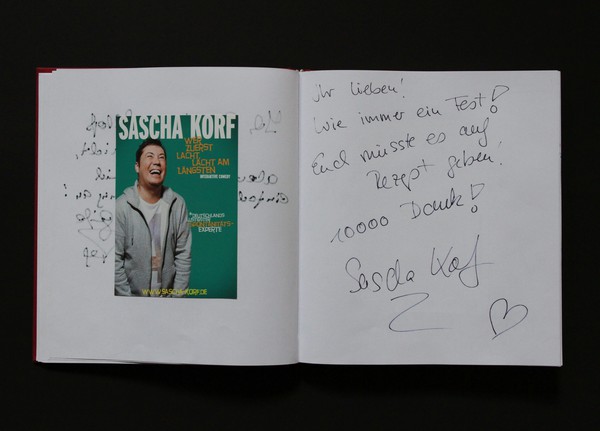 SASCHA KORF
WER
ZUERST
LACHT,
LACHT AM
LÄNGSTEN
INTERACTIVE COMEDY
DEUTSCHLANDS
SPONTANITÄTS-
EXPERTE
WWW.SASCHA-KORF.DE
ihr Lieben!
Wie immer ein Fest!
Euch müsste es auf
Rezept geben!
10000 Dank!
Sascha Korf